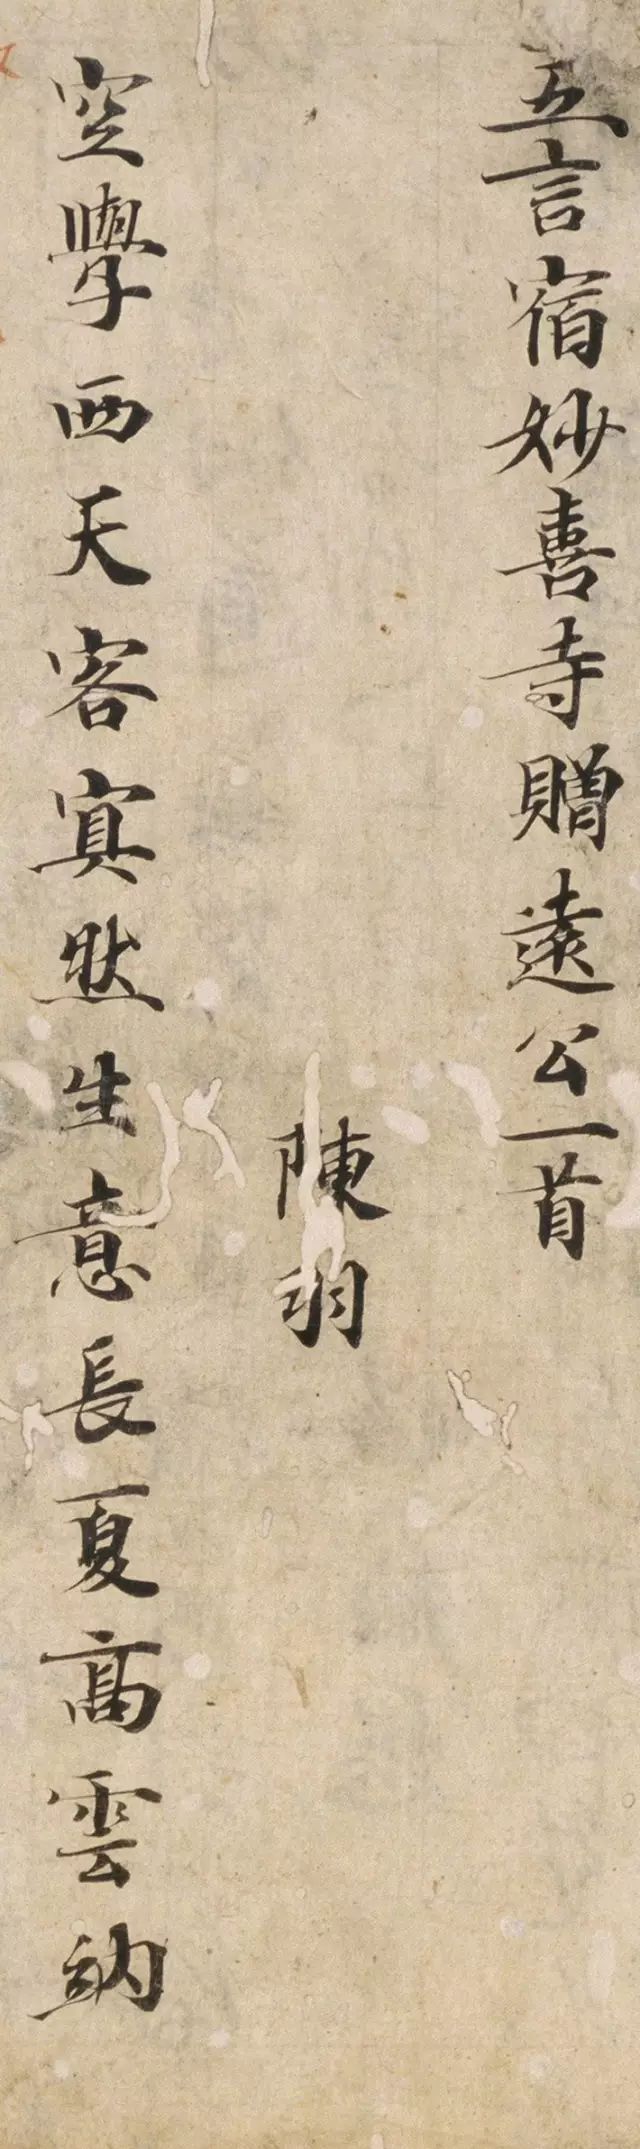 五言宿妙喜寺贈遠公一首
陳羽
空學西天客寘然生意長夏高雲納